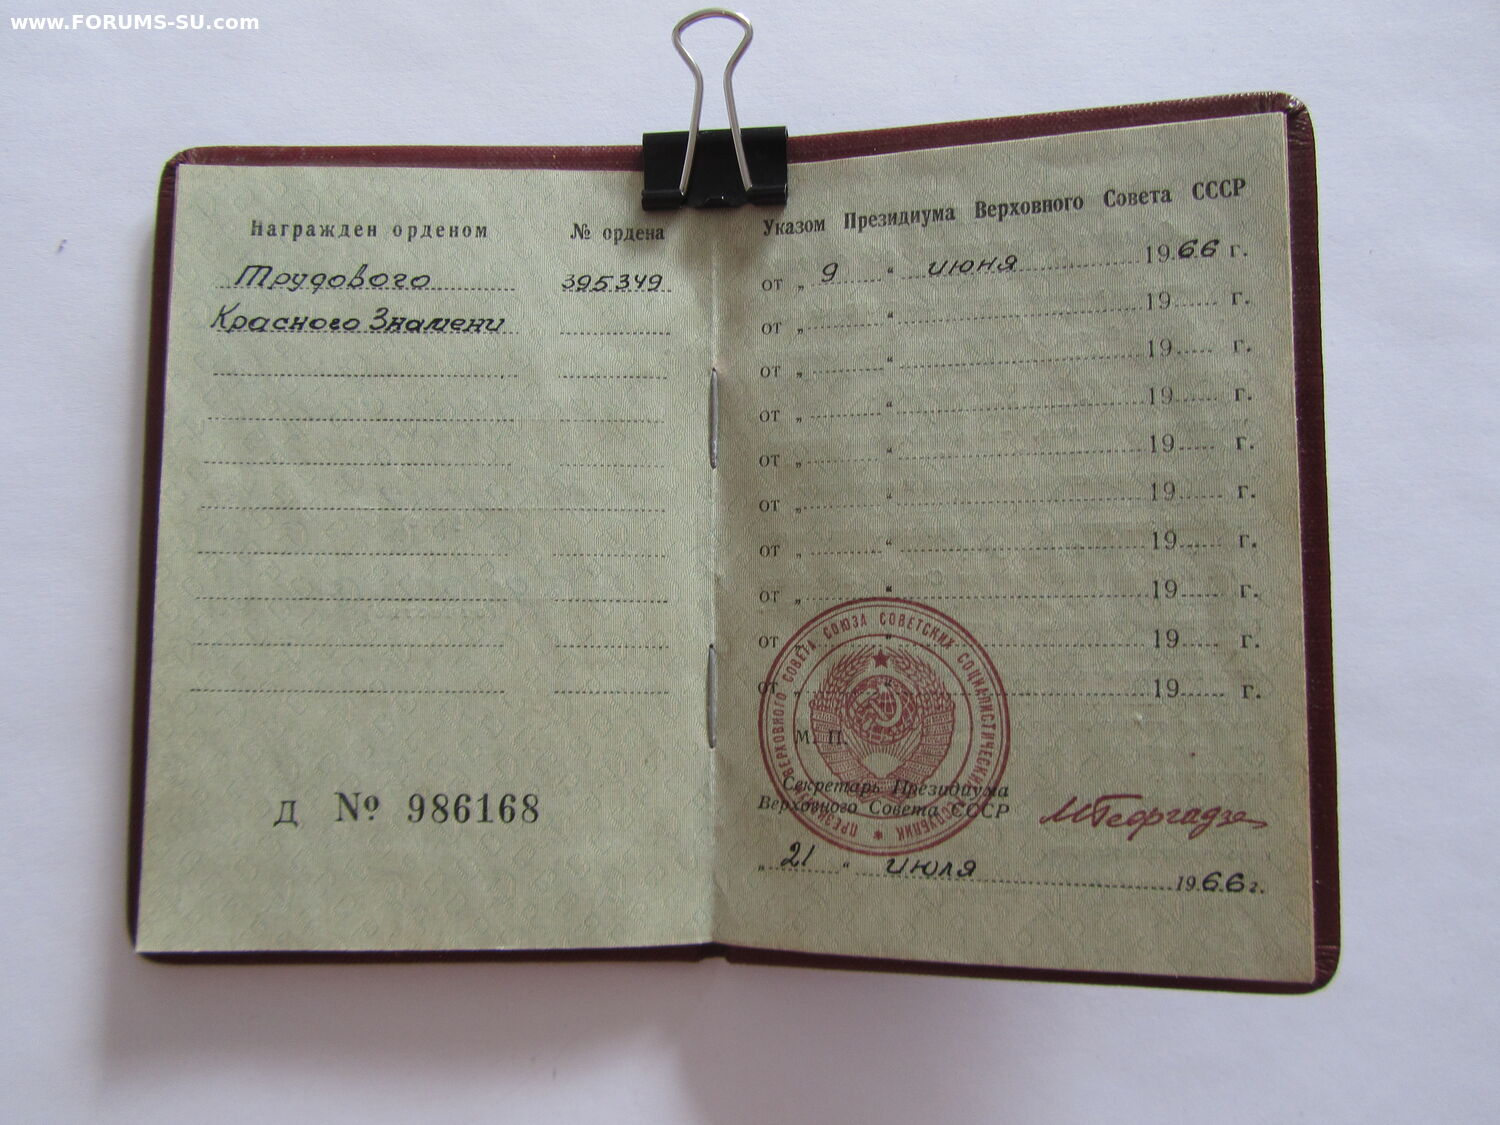 www.FORUMS-SU.com
Награжден орденом № ордена
Трудового 395349
Красного Знамени
Д № 986168
Указом Президиума Верховного Совета СССР
от „ 9 “ июня 1966 г.
от „ “ 19 г.
от „ “ 19 г.
от „ “ 19 г.
от „ “ 19 г.
от „ “ 19 г.
от „ “ 19 г.
от „ “ 19 г.
от „ “ 19 г.
от „ “ 19 г.
М. П.
ПРЕЗИДИУМ ВЕРХОВНОГО СОВЕТА СОЮЗА СОВЕТСКИХ СОЦИАЛИСТИЧЕСКИХ РЕСПУБЛИК
Секретарь Президиума
Верховного Совета СССР
МГеоргадзе
„ 21 “ июля 1966 г.